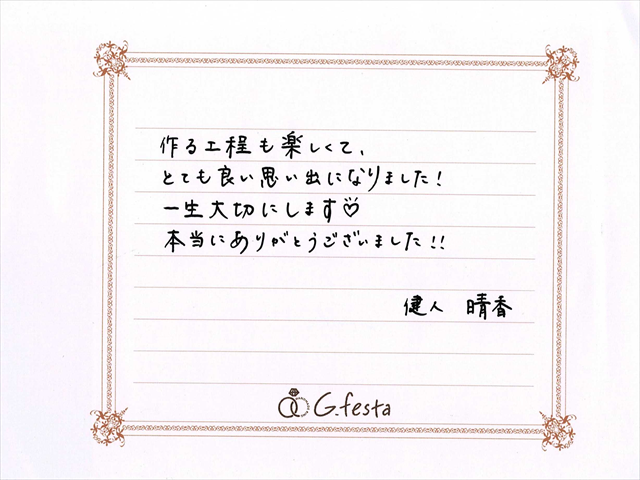 作る工程も楽しくて、
とても良い思い出になりました!
一生大切にします♡
本当にありがとうございました!!
健人 晴香
G.festa